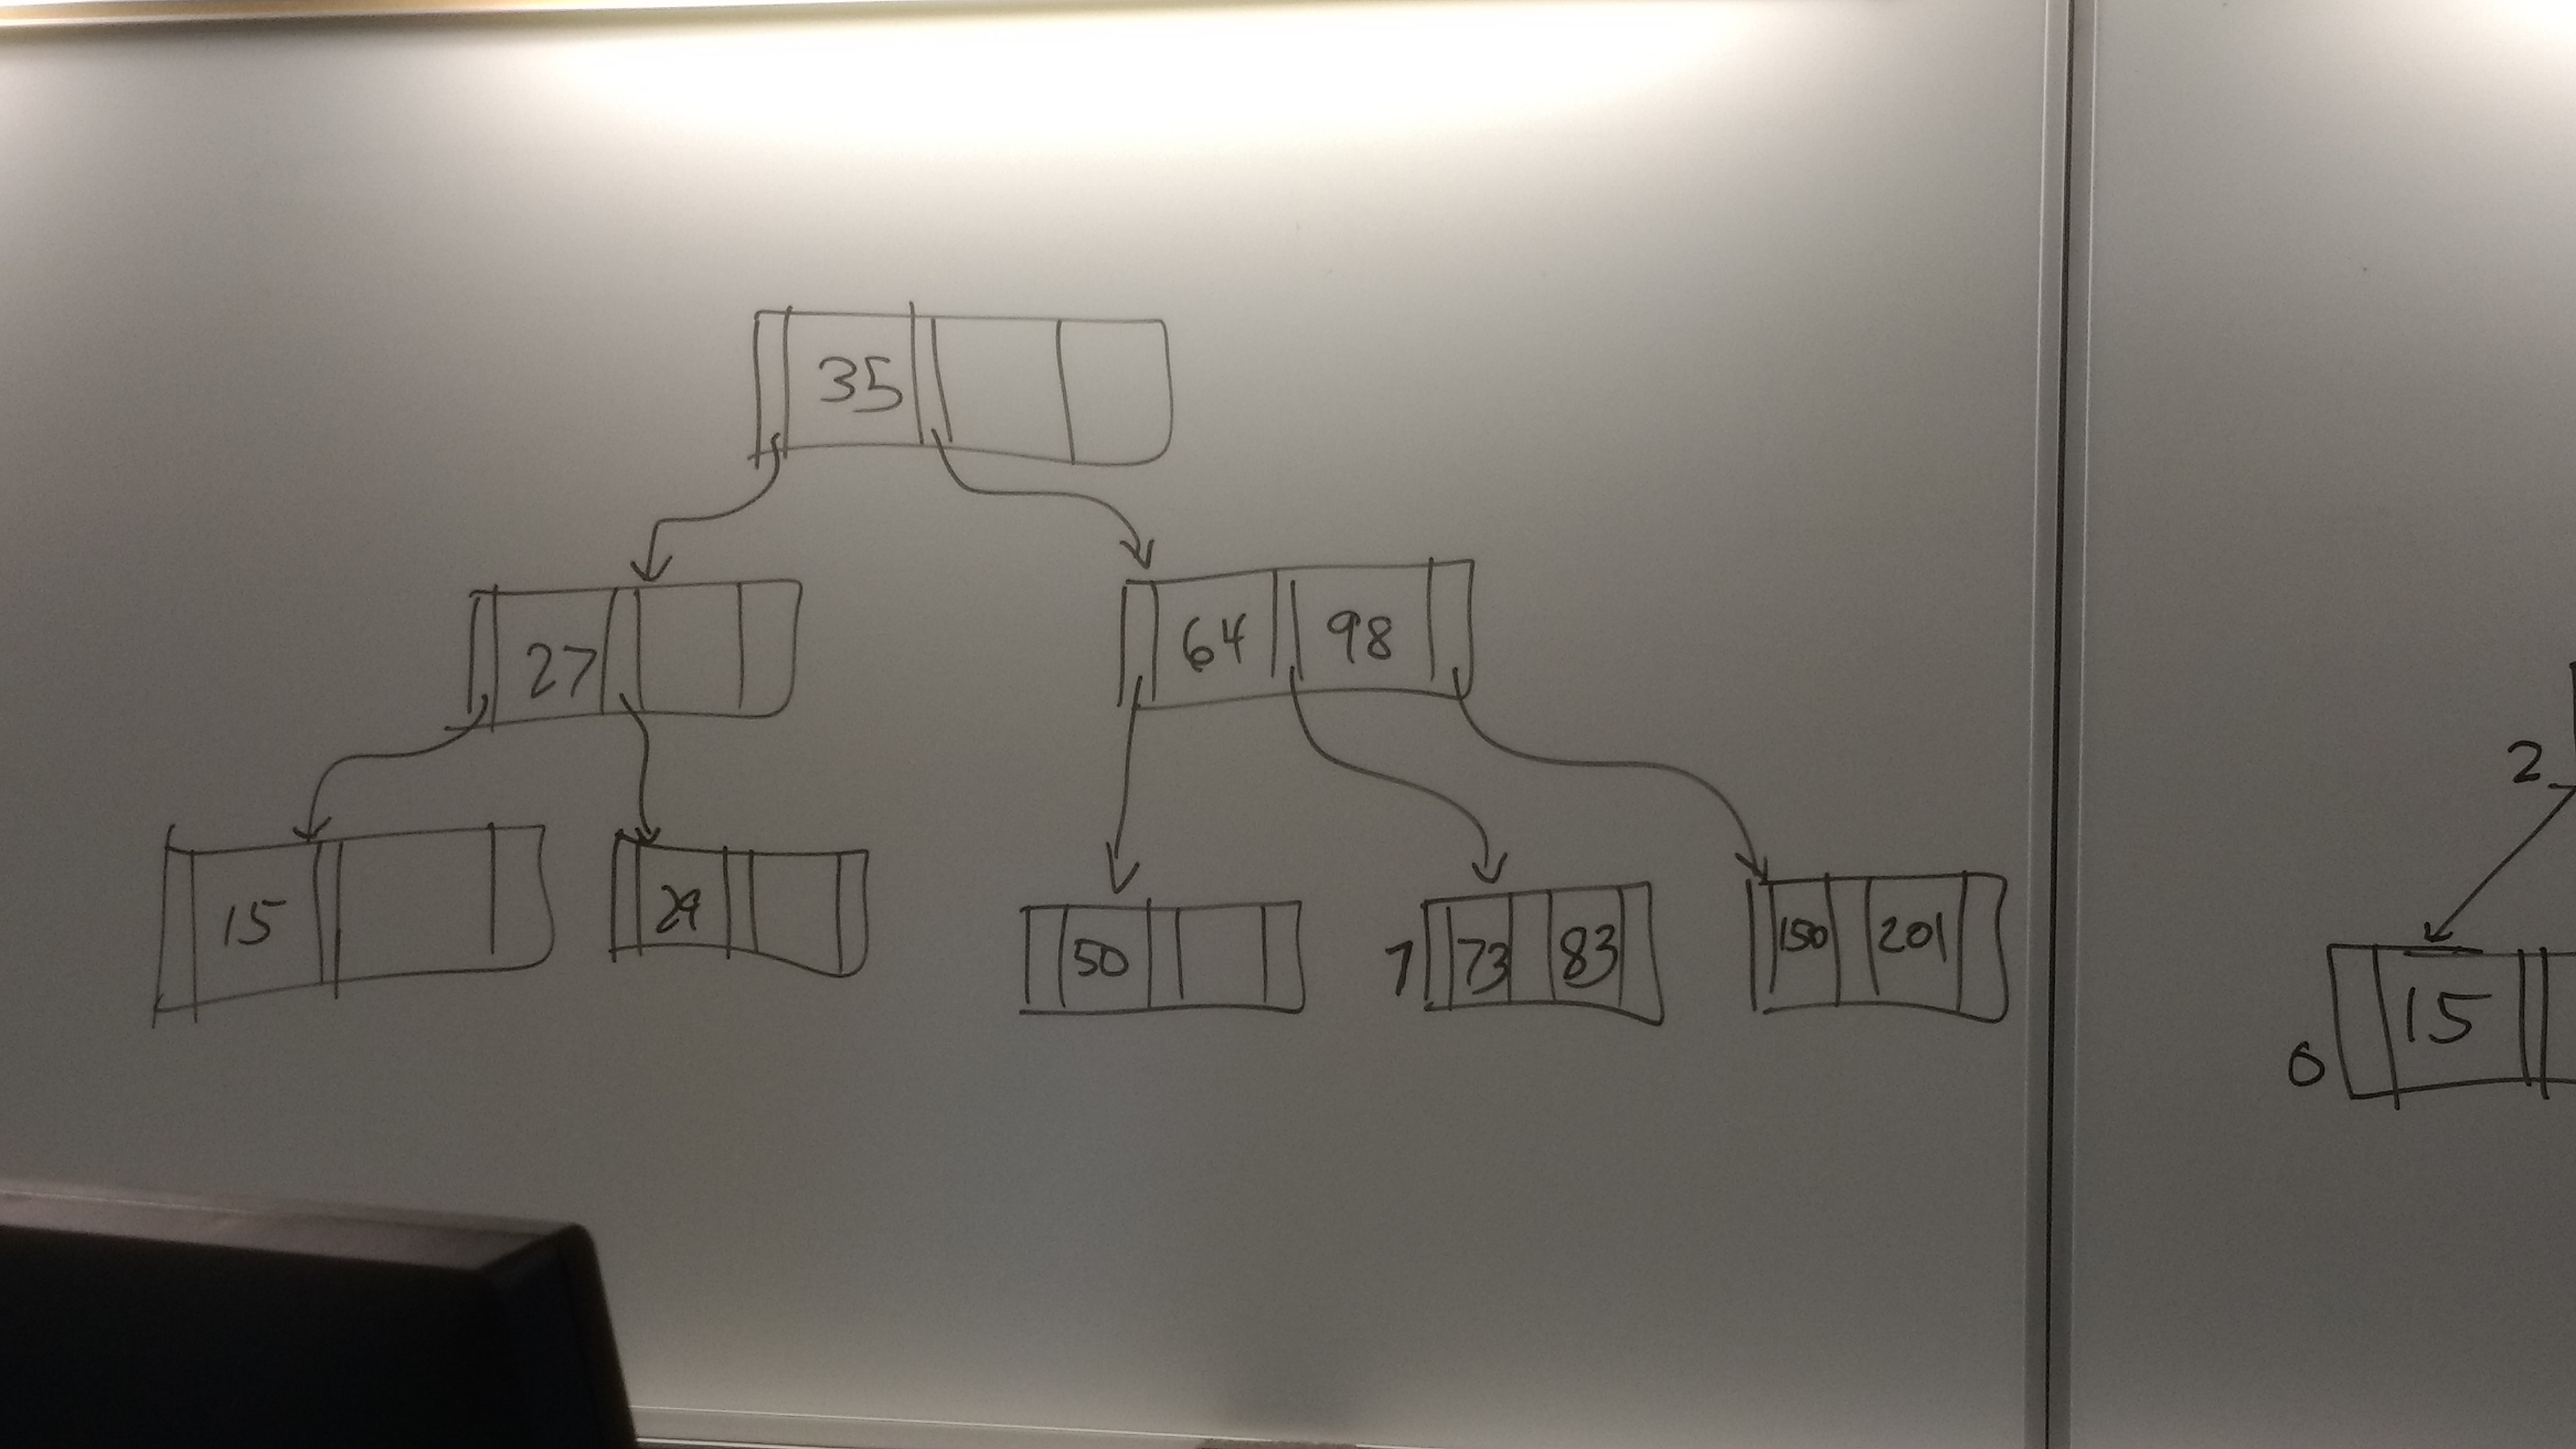 35
27
64 98
2
15
29
50
7 73 83
150 201
0 15